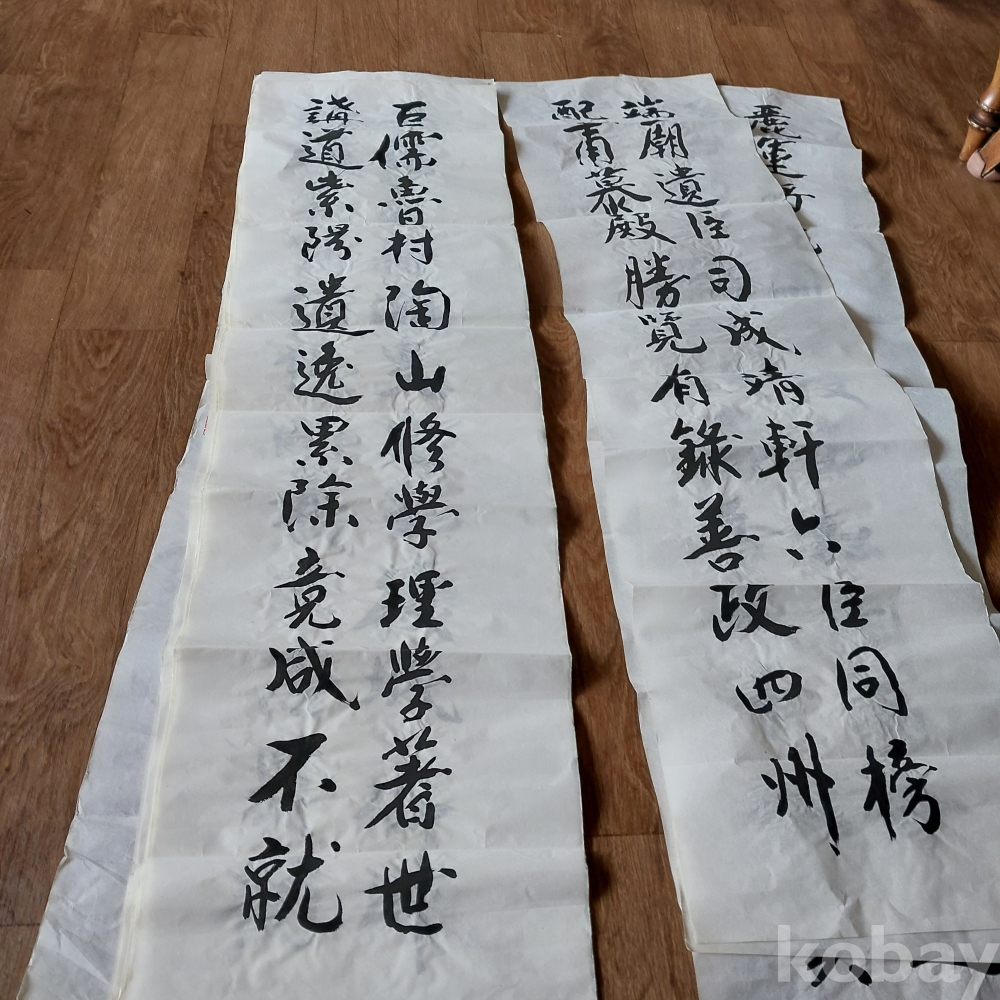 端廟遺臣司成靖軒六臣同榜
配甫慕殿勝覽有錄善政四州
巨儒魯村陶山修學理學著世
講道紫陽遺逸累除竟咸不就
kobay